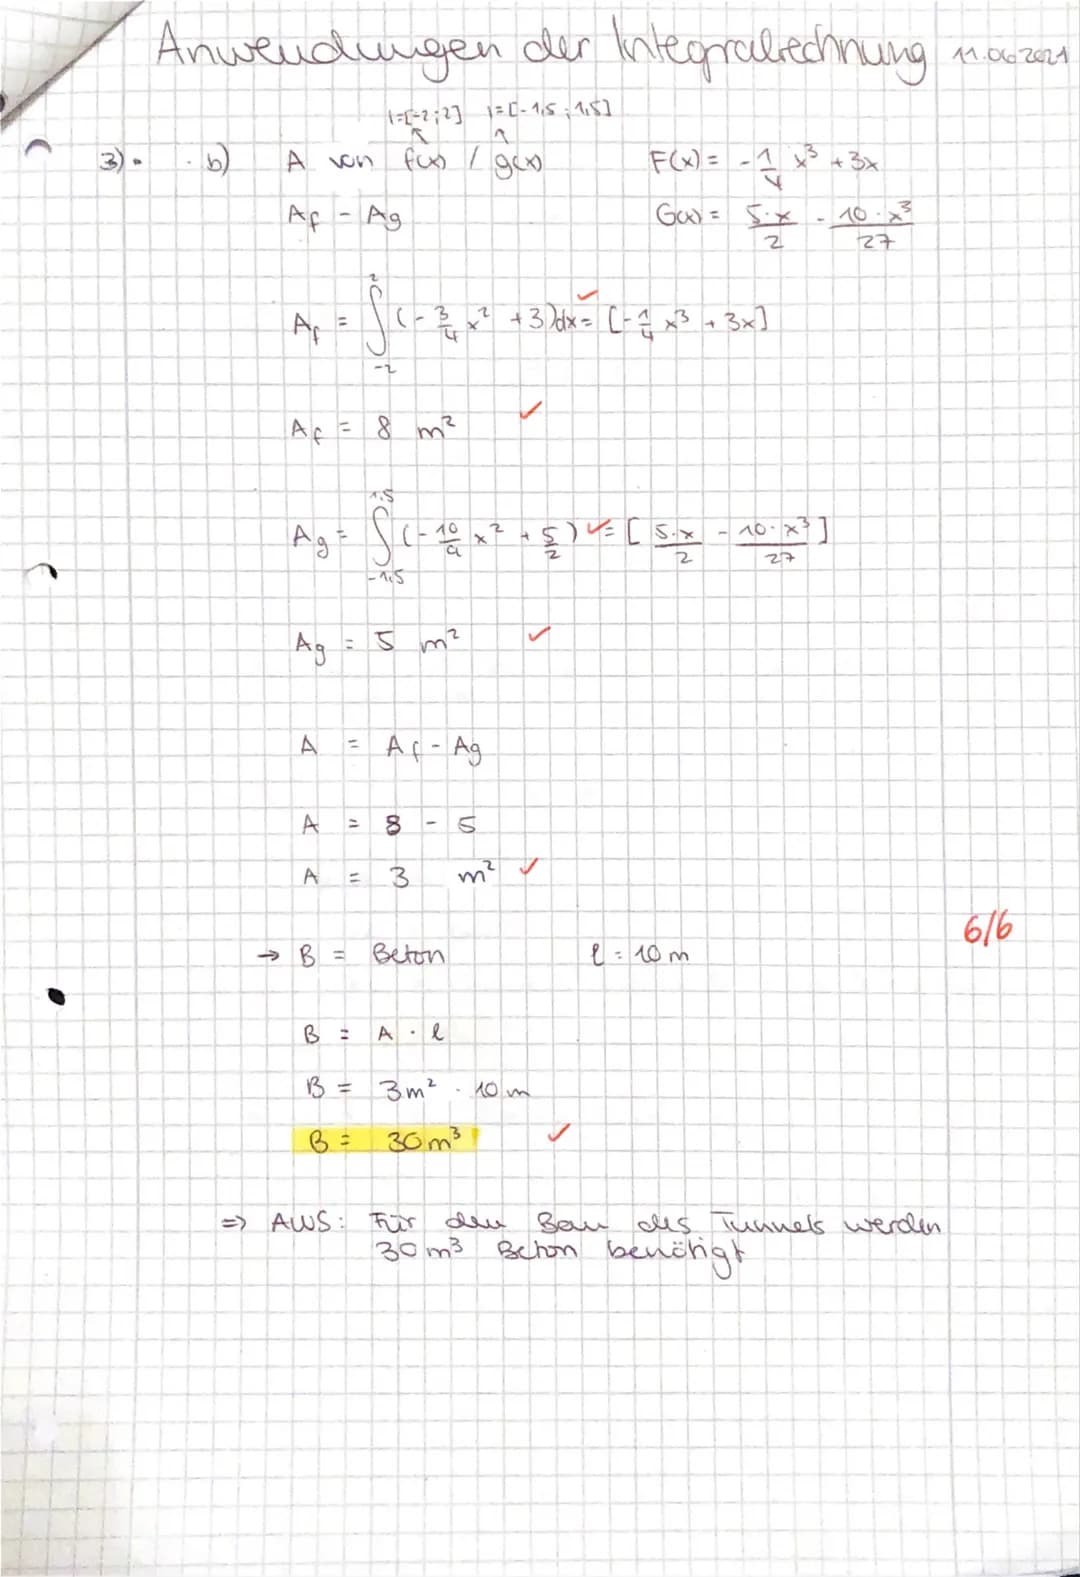 Anwendungen der Integralrechnung 11.06.2021
I=[-2;2] I=[-1,5;1,5]
3) b) A von f(x) / g(x) F(x) = -1/4 x³ + 3x
Af - Ag G(x) = 5·x/2 - 10·x³/27
Af = ∫_{-2}^{2} (-3/4 x² + 3)dx = [-1/4 x³ + 3x]
Af = 8 m²
Ag = ∫_{-1,5}^{1,5} (-10/9 x² + 5/2) = [5·x/2 - 10·x³/27]
Ag = 5 m²
A = Af - Ag
A = 8 - 5
A = 3 m²
6/6
→ B = Beton l = 10 m
B = A · l
B = 3m² · 10 m
B = 30m³
=> AWS: Für den Bau des Tunnels werden
30m³ Beton benötigt